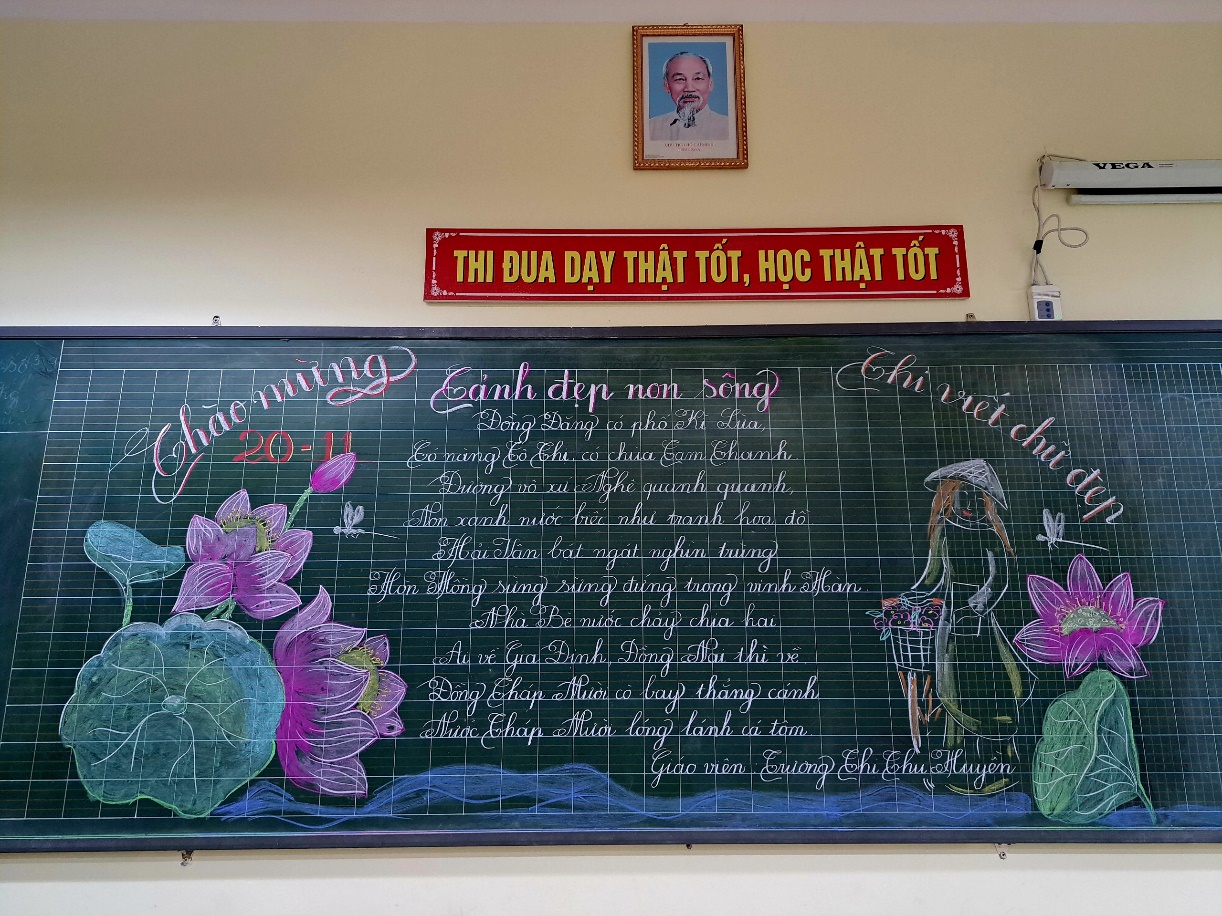 VEGA
THI ĐUA DẠY THẬT TỐT, HỌC THẬT TỐT
Chào mừng
20-11
Thi viết chữ đẹp
Cảnh đẹp non sông
Đồng Đăng có phố Kì Lừa,
Có nàng Tô Thị, có chùa Tam Thanh.
Đường vô xứ Nghệ quanh quanh,
Non xanh nước biếc như tranh họa đồ
Hải Vân bát ngát nghìn trùng
Hòn Hồng sừng sững đứng trong vịnh Hàn.
Nhà Bè nước chảy chia hai
Ai về Gia Định, Đồng Nai thì về
Đồng Tháp Mười cò bay thẳng cánh
Nước Tháp Mười lóng lánh cá tôm.
Giáo viên: Trương Thị Thu Huyền